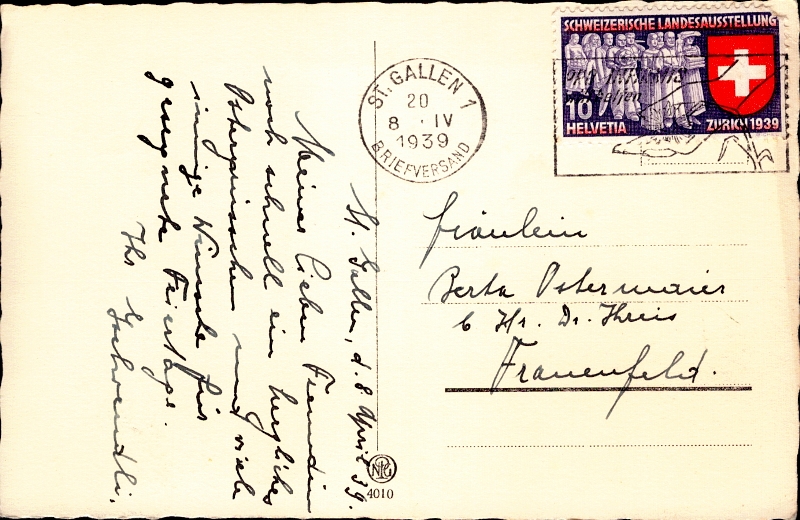 St. Gallen, d. 8. April 39.
Meiner lieben Freundin
noch schnell ein herzliches
Ostergrüsschen und viele
innige Wünsche für
gesegnete Feiertage.
Ihr
SCHWEIZERISCHE LANDESAUSSTELLUNG
10
HELVETIA
ZÜRICH 1939
ST. GALLEN 1
20
8 · IV
1939
BRIEFVERSAND
Fräulein
Berta Ostermaier
b Hr. Dr. Kreis
Frauenfeld.
4010